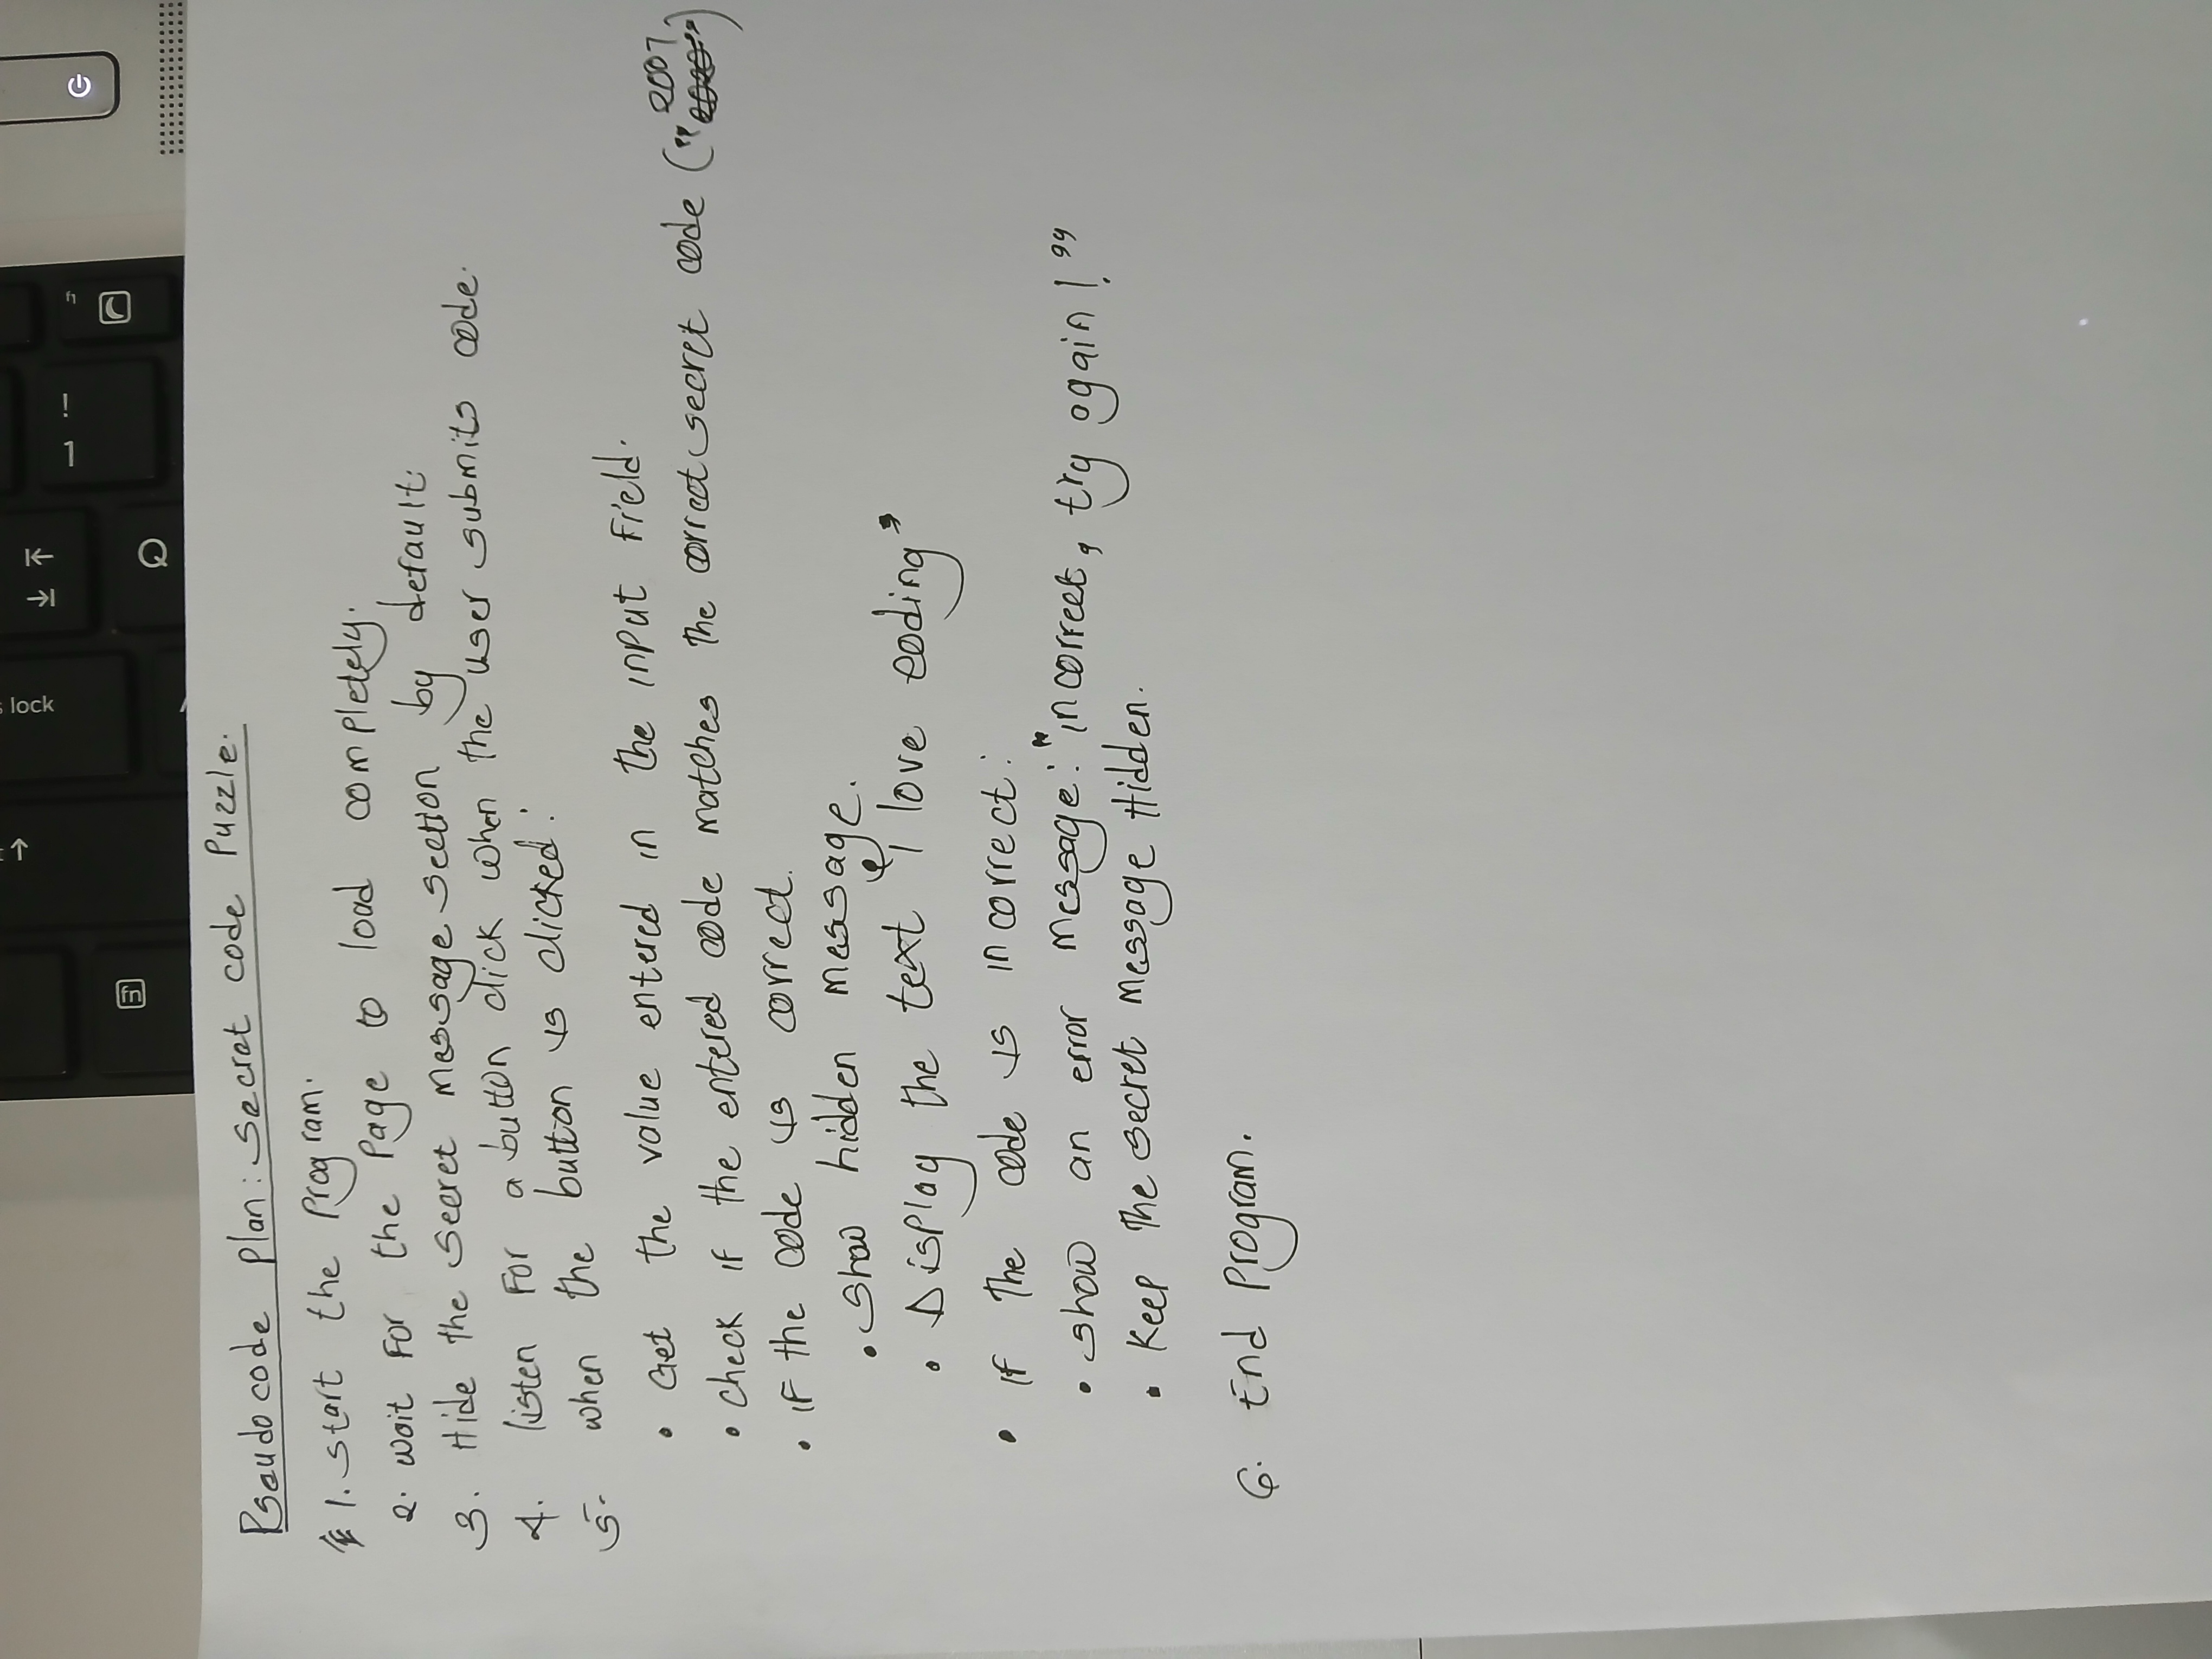 lock
fn
!
1
Q
Pseudocode plan: Secret code Puzzle.
1. Start the program.
2. wait For the Page to load completely.
3. Hide the secret message section by default.
4. listen For a button click when the user submits code.
5. when the button is clicked:
• Get the value entered in the input Field.
• check if the entered code matches the correct secret code ("2007")
• if the code is correct.
• Show hidden message.
• Display the text "I love coding"
• If the code is incorrect:
• show an error message: "incorrect, try again!"
• Keep the secret message Hidden.
6. End Program.